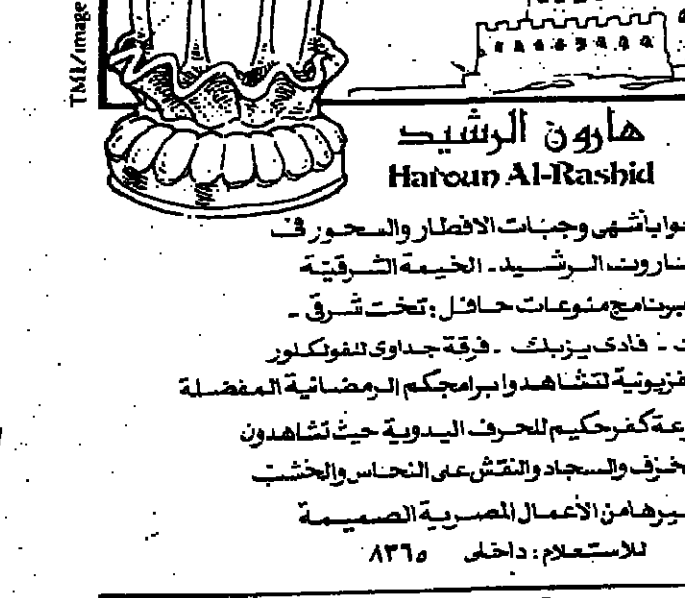 TMI/image
هارون الرشيد
Haroun Al-Rashid
بأشهى وجبات الافطار والسحور في
الرشيد - الخيمة الشرقية
برنامج منوعات حافل: تخت شرقي -
- فادى يزبك - فرقة جداوى للفولكلور
لتشاهدوا برامجكم الرمضانية المفضلة
كفر حكيم للحرف اليدوية حيث تشاهدون
والسجاد والنقش على النحاس والخشب
من الأعمال المصرية الصميمة
للاستعلام: داخلى ٨٣٦٥